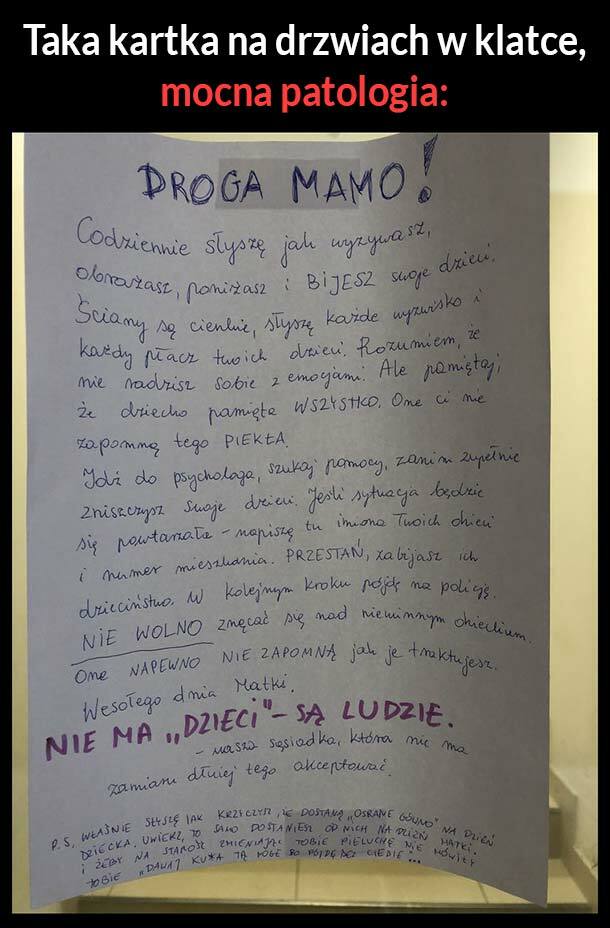 Taka kartka na drzwiach w klatce,
mocna patologia:
DROGA MAMO!
Codziennie słyszę jak wyzywasz,
obrażasz, poniżasz i BIJESZ swoje dzieci.
Ściany są cienkie, słyszę każde wyzwisko i
każdy płacz twoich dzieci. Rozumiem, że
nie radzisz sobie z emocjami. Ale pamiętaj,
że dziecko pamięta WSZYSTKO. One ci nie
zapomną tego PIEKŁA.
Idź do psychologa, szukaj pomocy, zanim zupełnie
zniszczysz swoje dzieci. Jeśli sytuacja będzie
się powtarzała - napiszę tu imiona Twoich dzieci
i numer mieszkania. PRZESTAŃ, zabijasz ich
dzieciństwo. W kolejnym kroku pójdę na policję.
NIE WOLNO znęcać się nad niewinnym dzieckiem.
One NAPEWNO NIE ZAPOMNĄ jak je traktujesz.
Wesołego dnia Matki.
NIE MA „DZIECI" - SĄ LUDZIE.
- wasza sąsiadka, która nie ma
zamiaru dłużej tego akceptować.
P.S. WŁAŚNIE SŁYSZĘ JAK KRZYCZYSZ, ŻE DOSTANĄ „OSRANE GÓWNO" NA DZIEŃ
DZIECKA. UWIERZ, TO SAMO DOSTANIESZ OD NICH NA DZIEŃ MATKI.
I ŻEBY NA STAROŚĆ ZMIENIAJĄC TOBIE PIELUCHĘ NIE MÓWIŁY
TOBIE „DAWAJ KU*A TĄ NOGĘ BO PÓJDĘ BEZ CIEBIE"...